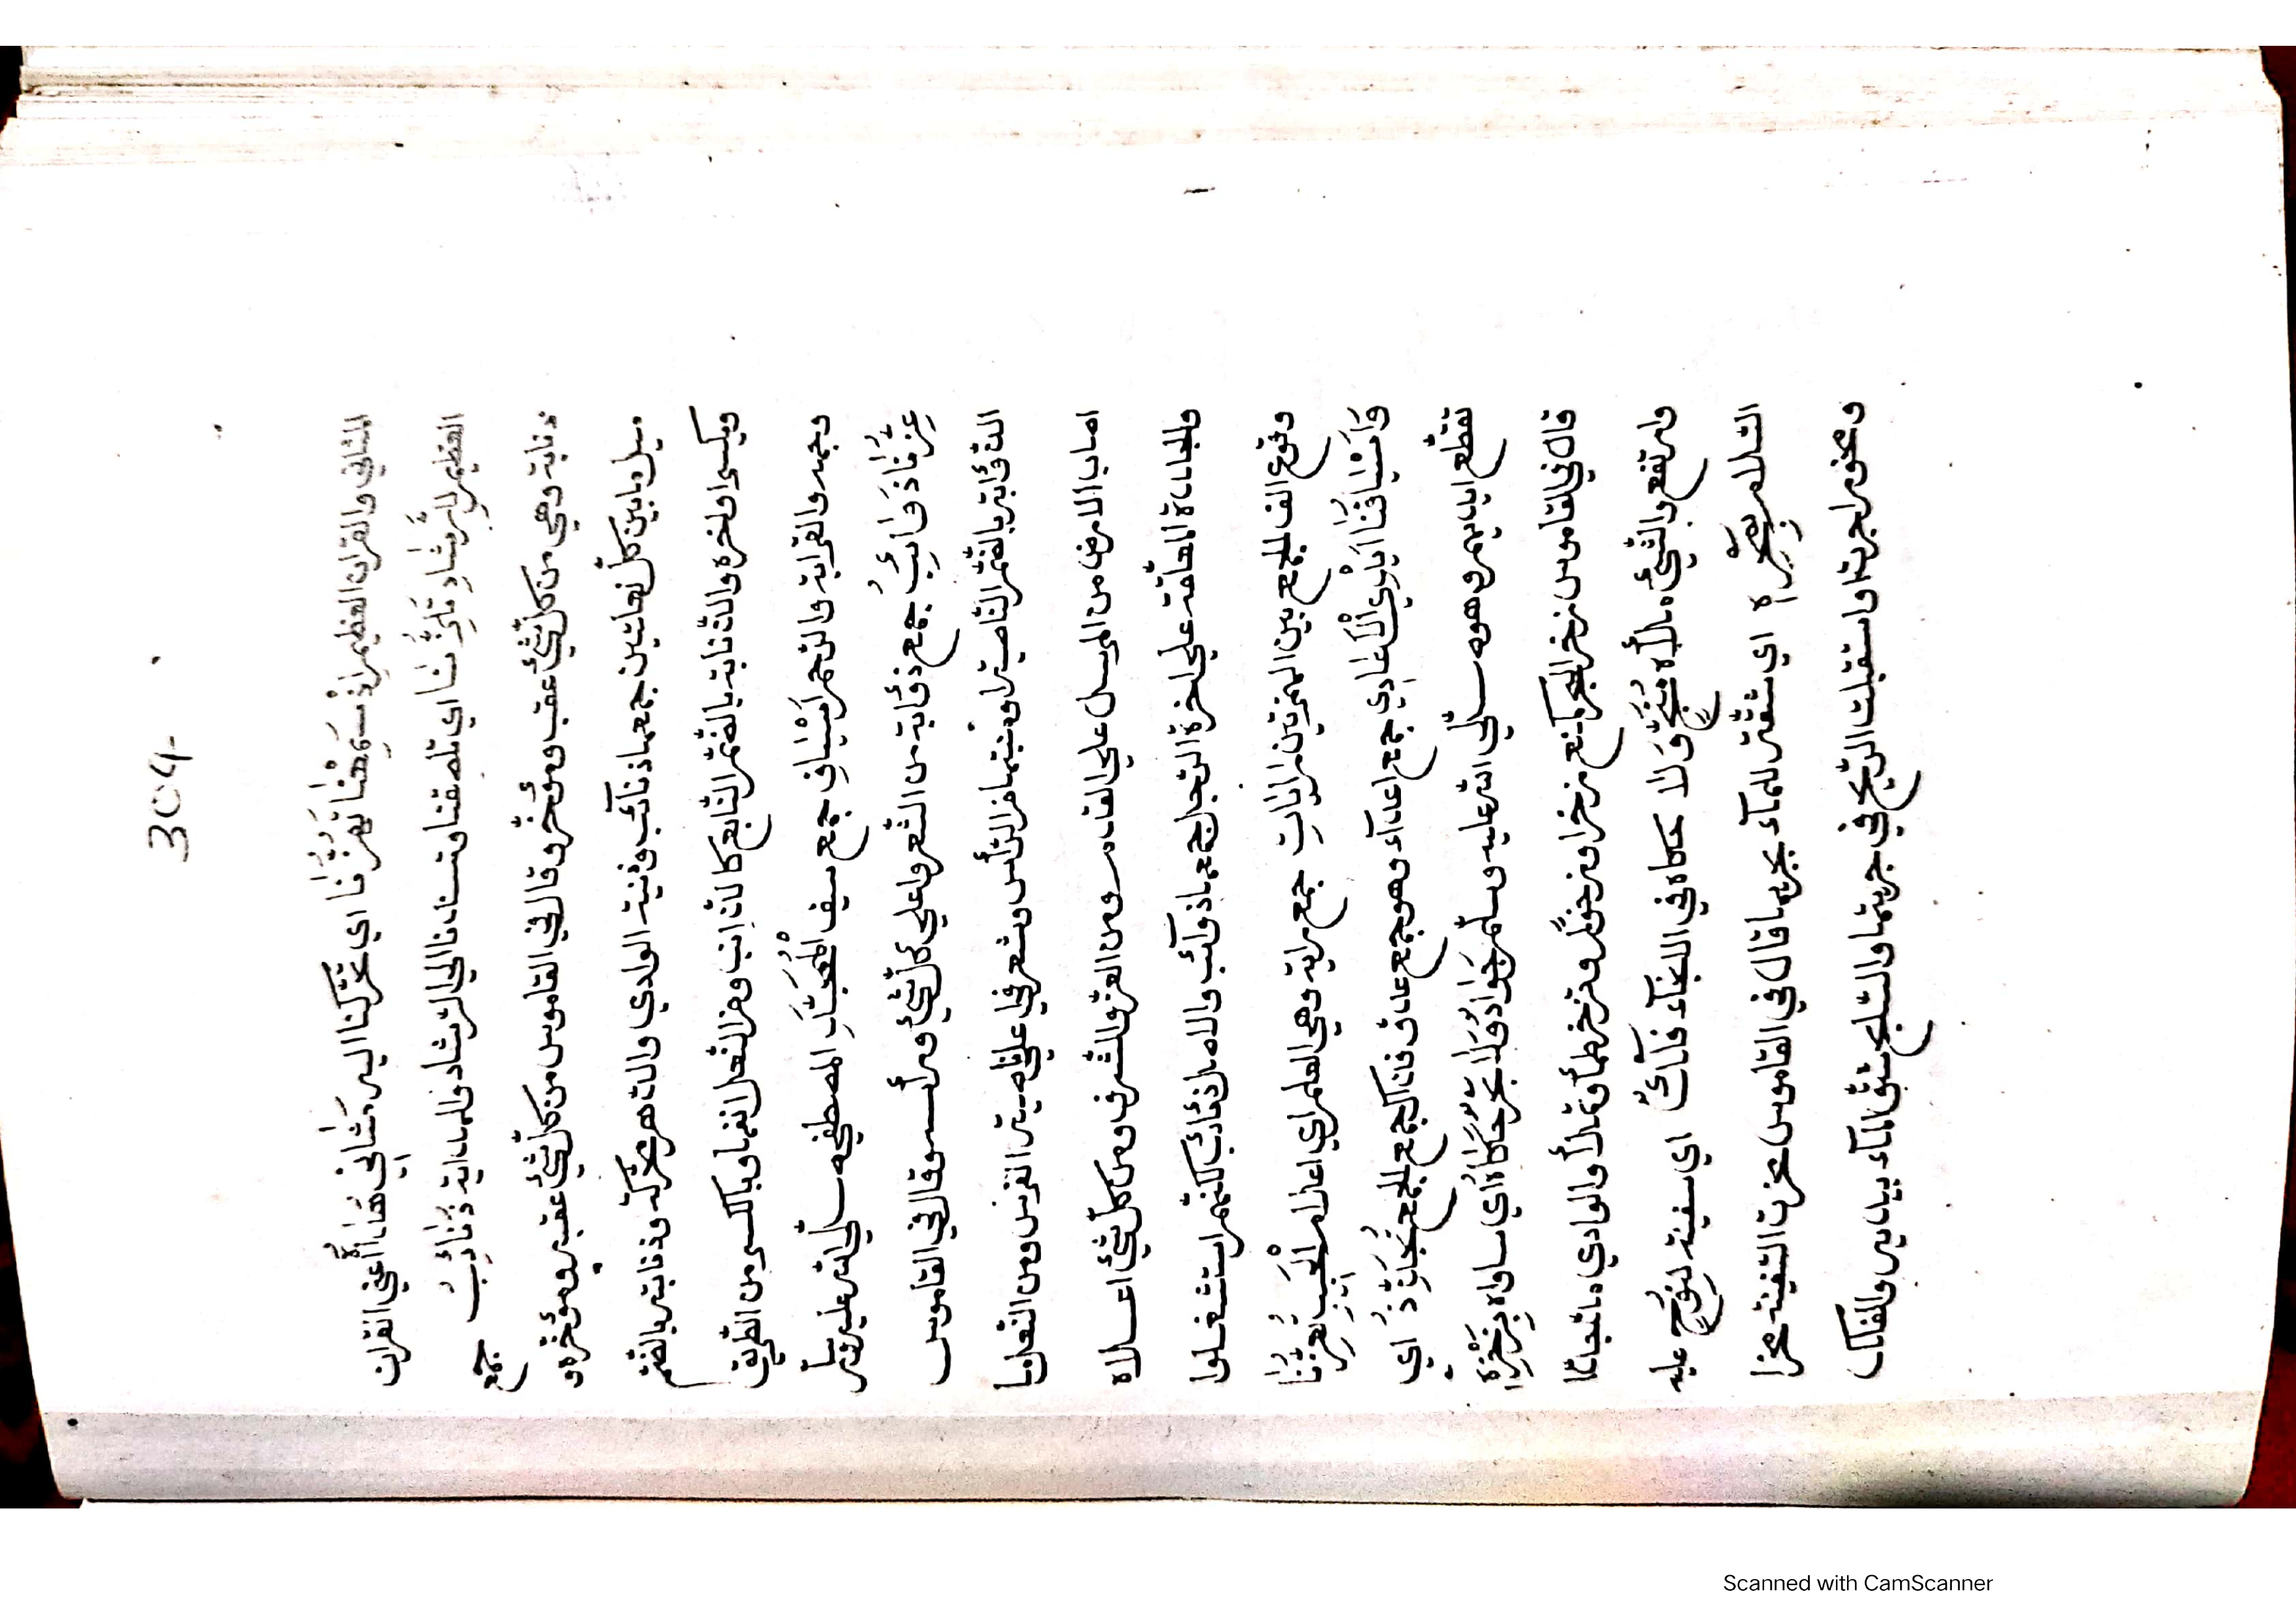 304-
المثاني والقران العظيم اذ سمعنا تهزنا اي تحركنا اليه مثاني هدا اعني القران
العظيم للرشاد تلزنا اي تلصقنا وتسندنا الي الرشاد والهداية ذنائب جمع
ذنابة وهي من كل شيء عقبه ومؤخره وقال في القاموس من كل شيء عقبه ومؤخره و
ميل ما بين كل تلعتين جمعها ذنائب وذنبة الوادي والدهر محركة وذنابته بالضم
ويكسر اواخره والذنابة بالضم التابع كالذانب ومن النعل انفها وبالكسر من الطريق
وجهه والقرابة والرحم اسياف جمع سيف المحبر المصطفي صلي الله عليه وسلم
عزنا ذوائب جمع ذؤابة من الشعر واعلي كل شيء ورأسه وقال في القاموس
الذؤابة بالضم الناصية او منبتها من الرأس وشعر في اعلي ناصية الفرس ومن النعل ما
اصاب الارض من المرسل علي القدم ومن العز والشرف ومن كل شيء اعلاه
والجلدة المعلقة علي اخرة الرحل ج جمعها ذوآئب والاصل ذءائب لكنهم استثقلوا
وقوع الف الجمع بين الهمزتين رايات جمع راية وهي العلم اي اعلام الحب تعزنا
واسيافنا ايدي الاعادي جمع اعداء وهو جمع عدو فذاك جمع الجمع تجذذ اي
تقطع ايديهم وهو صلي الله عليه وسلم جواد ولا بحر حكاه اي ساواه بزخره
قال في القاموس زخر البحر كمنع زخرا وزخورا وتزخر طمأ وتملأ والوادي مد جدا
وارتفع والشيء ملأه منج ولا حكاه في النجاء فلك اي سفينة لنوح عليه
السلام بمخره اي شقته للماء بجريها قال في القاموس مخرت السفينة مخرا
ومخورا جرت او استقبلت الريح في جريتها والسابح شق الماء بيديه والفلك
Scanned with CamScanner